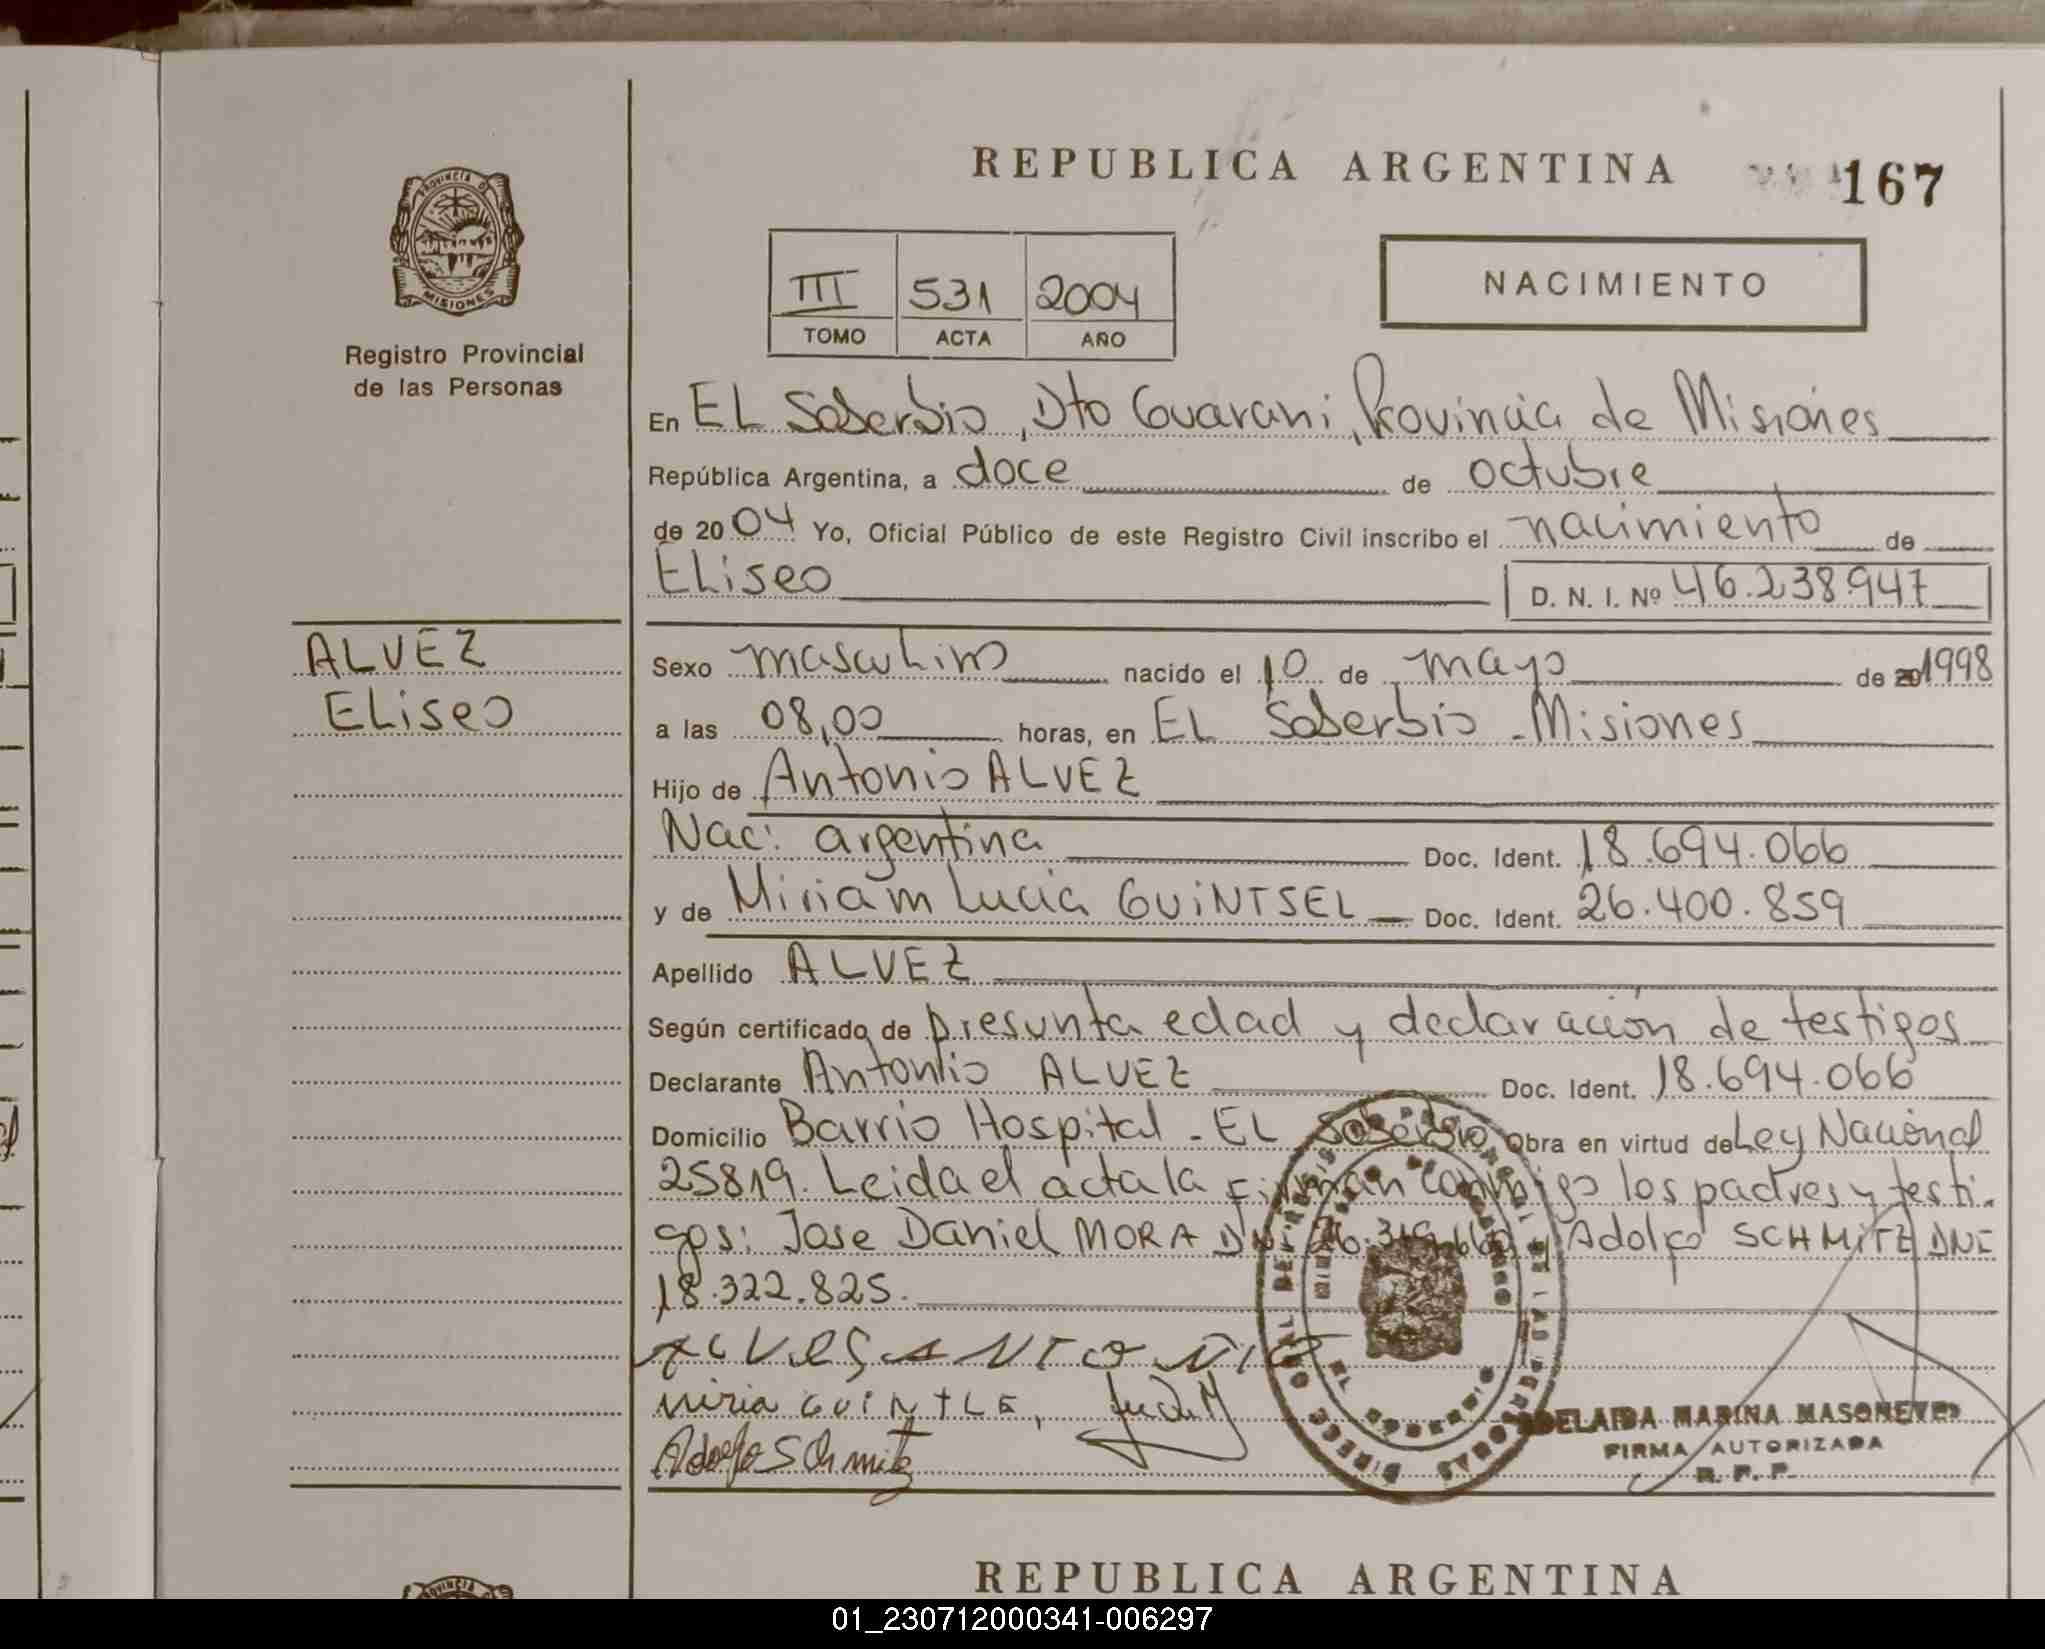 REPUBLICA ARGENTINA
167
PROVINCIA D
MISIONES
Registro Provincial
de las Personas
III 531 2004
TOMO ACTA AÑO
NACIMIENTO
En EL Soberbio, Dto Guarani, Provincia de Misiones
República Argentina, a doce de octubre
de 2004 Yo, Oficial Público de este Registro Civil inscribo el nacimiento de
Eliseo D. N. I. Nº 46.238.947
ALVEZ
Eliseo
Sexo masculino nacido el 10 de mayo de 1998
a las 08,00 horas, en EL Soberbio - Misiones
Hijo de Antonio ALVEZ
Nac: argentina Doc. Ident. 18.694.066
y de Miriam Lucia GUINTSEL Doc. Ident. 26.400.859
Apellido ALVEZ
Según certificado de presunta edad y declaración de testigos
Declarante Antonio ALVEZ Doc. Ident. 18.694.066
Domicilio Barrio Hospital - EL Soberbio Obra en virtud de Ley Nacional
25819. Leida el acta la firman conmigo los padres y testi-
gos: Jose Daniel MORA DNI y Adolfo SCHMITZ DNI
18.322.825.
ALVES ANTONIO
miria GUINTLE,
Adolfo SChmitz
ADELAIDA MARINA MASONEVE
FIRMA AUTORIZADA
R. P. P.
REPUBLICA ARGENTINA
01_230712000341-006297